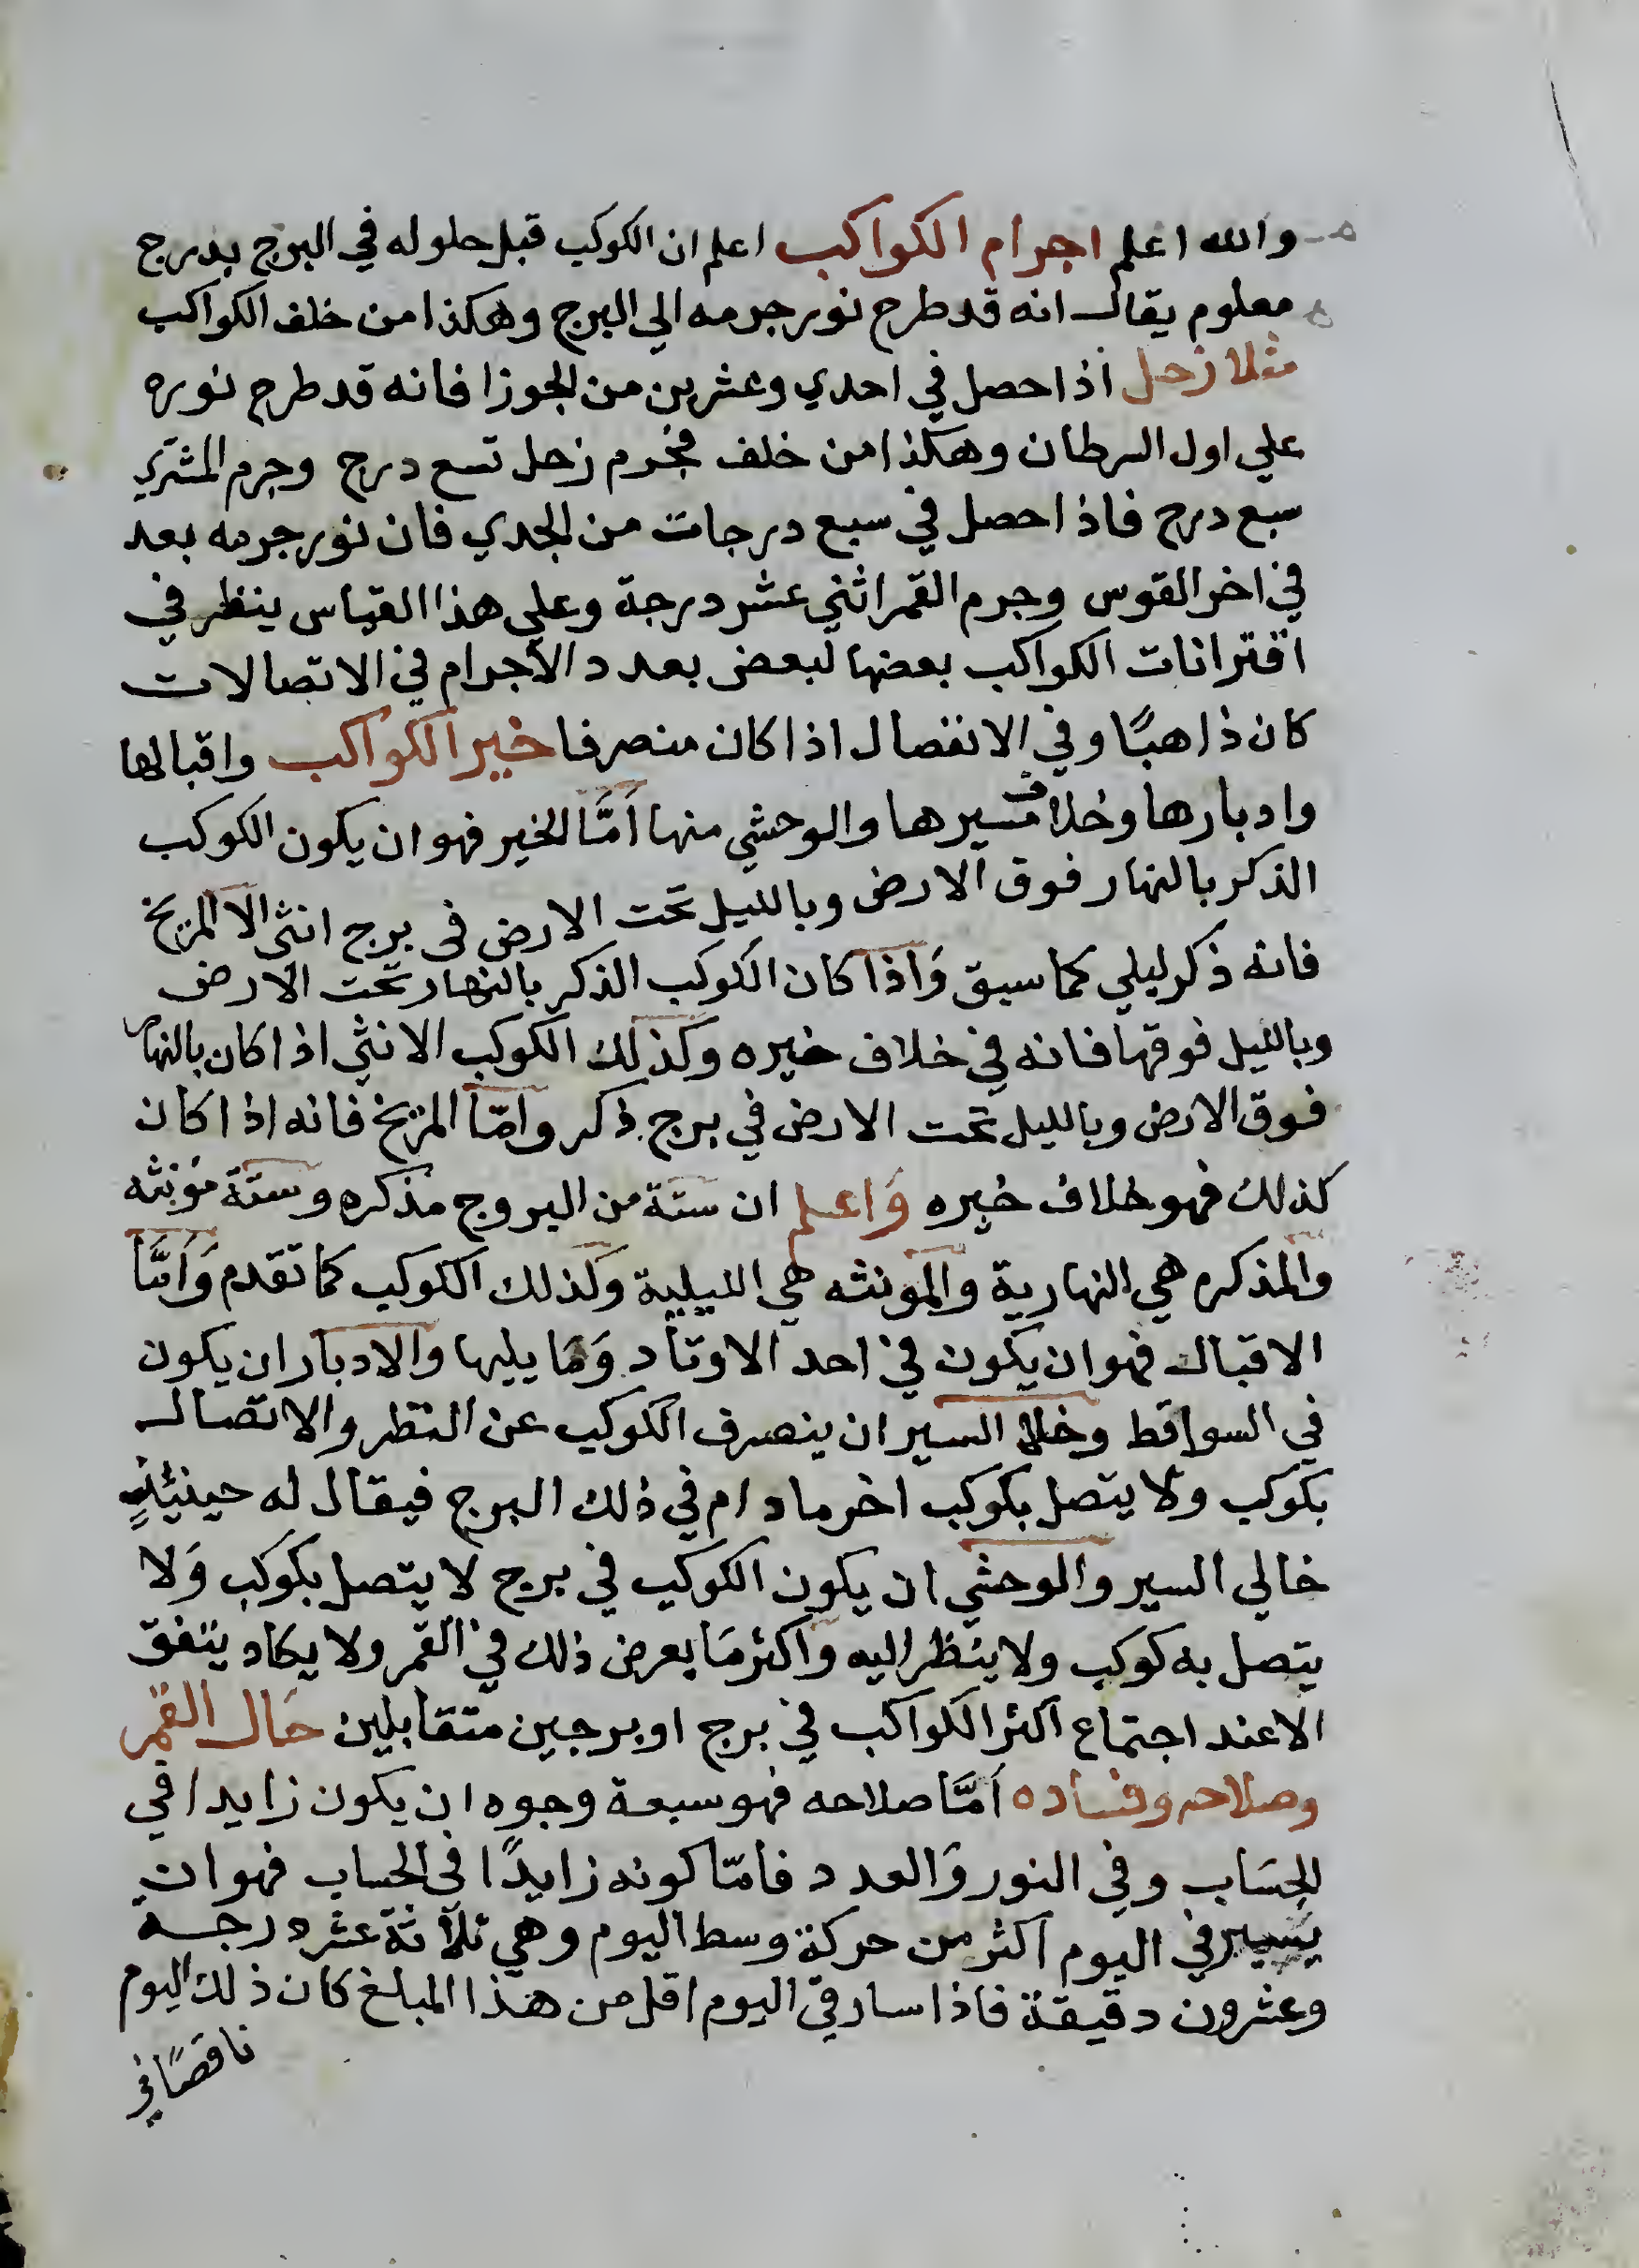 والله اعلم اجرام الكواكب اعلم ان الكوكب قبل حلوله في البرج بدرج
معلوم يقال انه قد طرح نور جرمه الي البرج وهكذا من خلف الكواكب
مثلا زحل اذا حصل في احدي وعشرين من الجوزا فانه قد طرح نوره
علي اول السرطان وهكذا من خلف فجرم زحل تسع درج وجرم المشتري
سبع درج فاذا حصل في سبع درجات من الجدي فان نور جرمه بعد
في اخر القوس وجرم القمر اثني عشر درجة وعلي هذا القياس ينظر في
اقترانات الكواكب بعضها لبعض بعدد الاجرام في الاتصالات
كان ذاهبًا وفي الانفصال اذا كان منصرفا خير الكواكب واقبالها
وادبارها وخلاف مسيرها والوحشي منها اَمَّا الخير فهو ان يكون الكوكب
الذكر بالنهار فوق الارض وبالليل تحت الارض فى برج انثى الا المريخ
فانه ذكر ليلي كما سبق وَاذا كان الكوكب الذكر بالنهار تحت الارض
وبالليل فوقها فانه في خلاف خيره وكذلك الكوكب الانثي اذا كان بالنهار
فوق الارض وبالليل تحت الارض في برج ذكر وامّا المريخ فانه اذا كان
كذلك فهو خلاف خيره وَاعلم ان ستة من البروج مذكره وستة مؤنثه
والمذكره هي النهارية والمونثه هي الليلية وكذلك الكوكب كما تقدم وَاَمَّا
الاقبال فهو ان يكون في احد الاوتاد وَمَا يليها والادبار ان يكون
في السواقط وخلا السير ان ينصرف الكوكب عن النظر والاتصال
بكوكب ولا يتصل بكوكب اخر ما دام في ذلك البرج فيقال له حينئذٍ
خالي السير والوحشي ان يكون الكوكب في برج لا يتصل بكوكب وَلا
يتصل به كوكب ولا ينظر اليه واكثر مَا يعرض ذلك في القمر ولا يكاد يتفق
الا عند اجتماع اكثر الكواكب في برج او برجين متقابلين حَال القمر
وصلاحه وفساده اَمَّا صلاحه فهو سبعة وجوه ان يكون زايدا في
الحِسَاب وفي النور وَالعدد فامّا كونه زايدًا في الحساب فهو ان
يَسير في اليوم اكثر من حركة وسط اليوم وهي ثلاثة عشر درجة
وعشرون دقيقة فاذا سار في اليوم اقل من هذا المبلغ كان ذلك اليوم
ناقصًا في